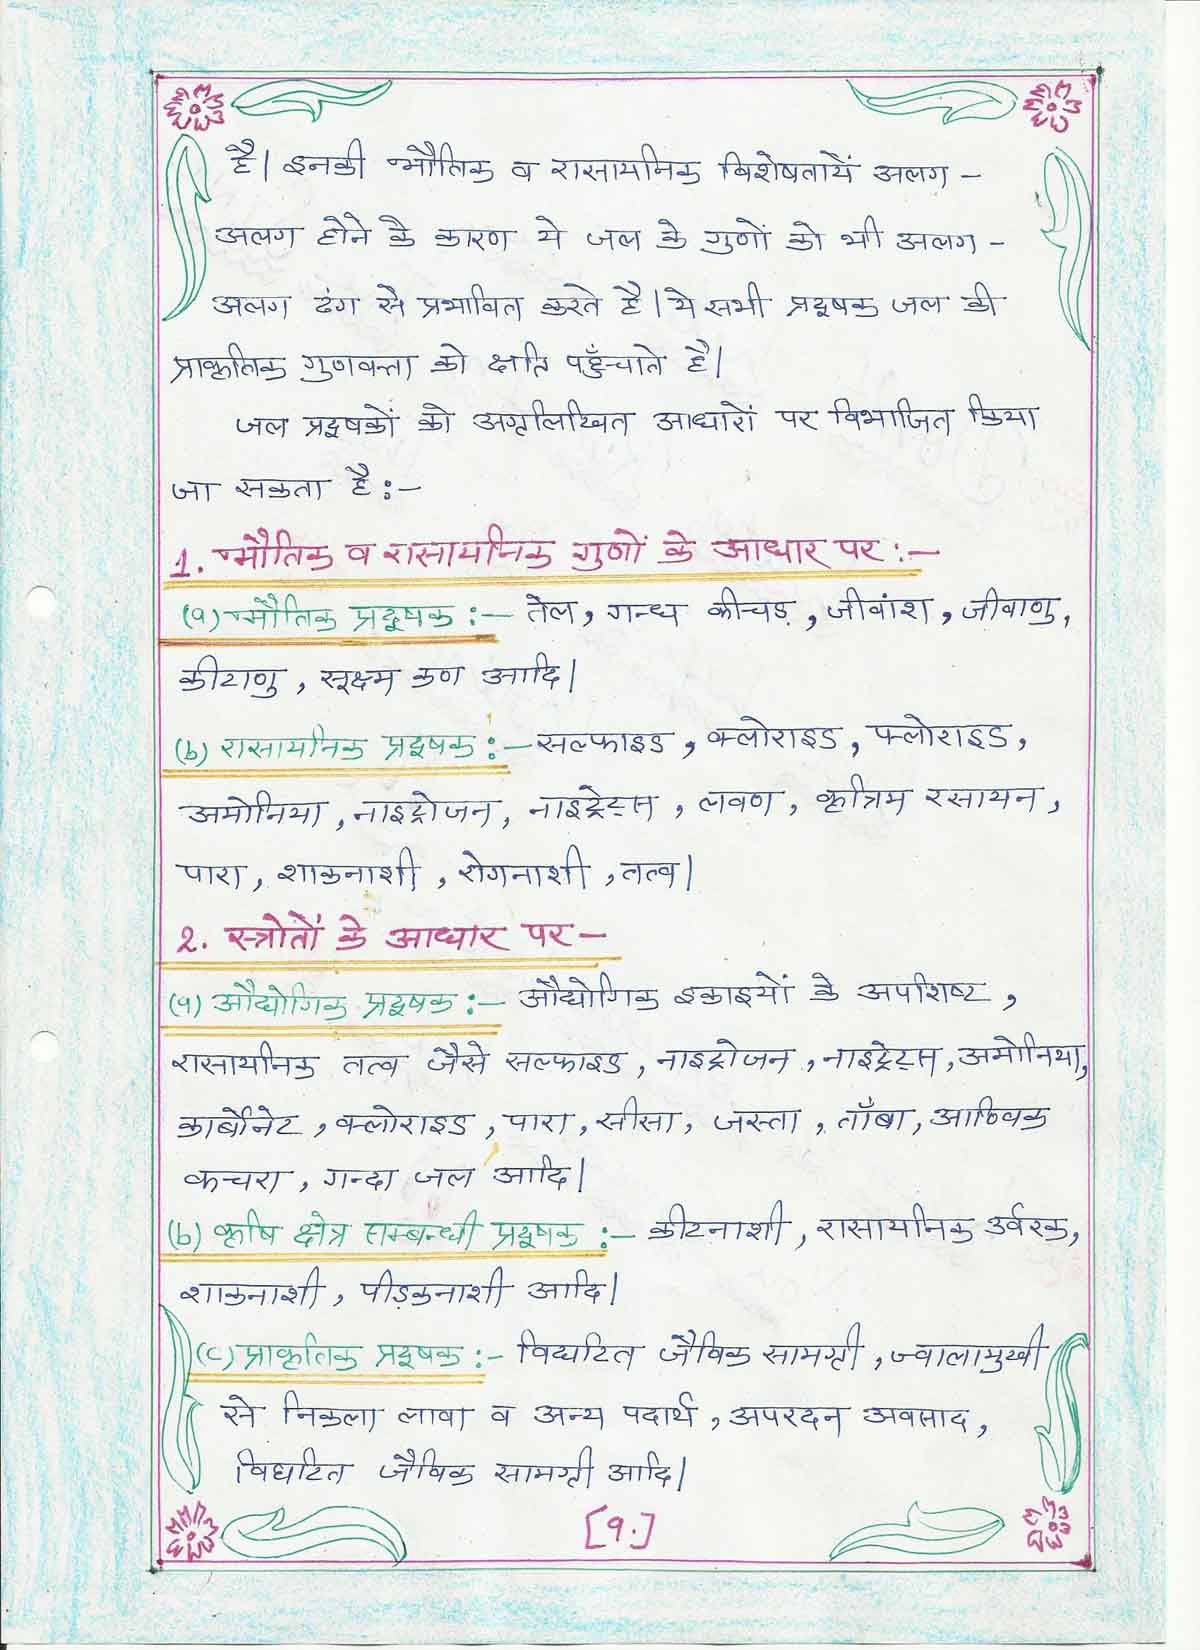 है। इनकी भौतिक व रासायनिक विशेषतायें अलग -
अलग होने के कारण ये जल के गुणों को भी अलग -
अलग ढंग से प्रभावित करते है। ये सभी प्रदूषक जल की
प्राकृतिक गुणवत्ता को क्षति पहुँचाते है।
जल प्रदूषकों को अग्रलिखित आधारों पर विभाजित किया
जा सकता है:-
1. भौतिक व रासायनिक गुणों के आधार पर:-
(a) भौतिक प्रदूषक:- तेल, गन्ध कीचड़, जीवांश, जीवाणु,
कीटाणु, सूक्ष्म कण आदि।
(b) रासायनिक प्रदूषक:- सल्फाइड, क्लोराइड, फ्लोराइड,
अमोनिया, नाइट्रोजन, नाइट्रेट्स, लवण, कृत्रिम रसायन,
पारा, शाकनाशी, रोगनाशी, तत्व।
2. स्त्रोतों के आधार पर-
(a) औद्योगिक प्रदूषक:- औद्योगिक इकाइयों के अपशिष्ट,
रासायनिक तत्व जैसे सल्फाइड, नाइट्रोजन, नाइट्रेट्स, अमोनिया,
कार्बोनेट, क्लोराइड, पारा, सीसा, जस्ता, ताँबा, आण्विक
कचरा, गन्दा जल आदि।
(b) कृषि क्षेत्र सम्बन्धी प्रदूषक:- कीटनाशी, रासायनिक उर्वरक,
शाकनाशी, पीड़कनाशी आदि।
(c) प्राकृतिक प्रदूषक:- विघटित जैविक सामग्री, ज्वालामुखी
से निकला लावा व अन्य पदार्थ, अपरदन अवसाद,
विघटित जैविक सामग्री आदि।
[9.]